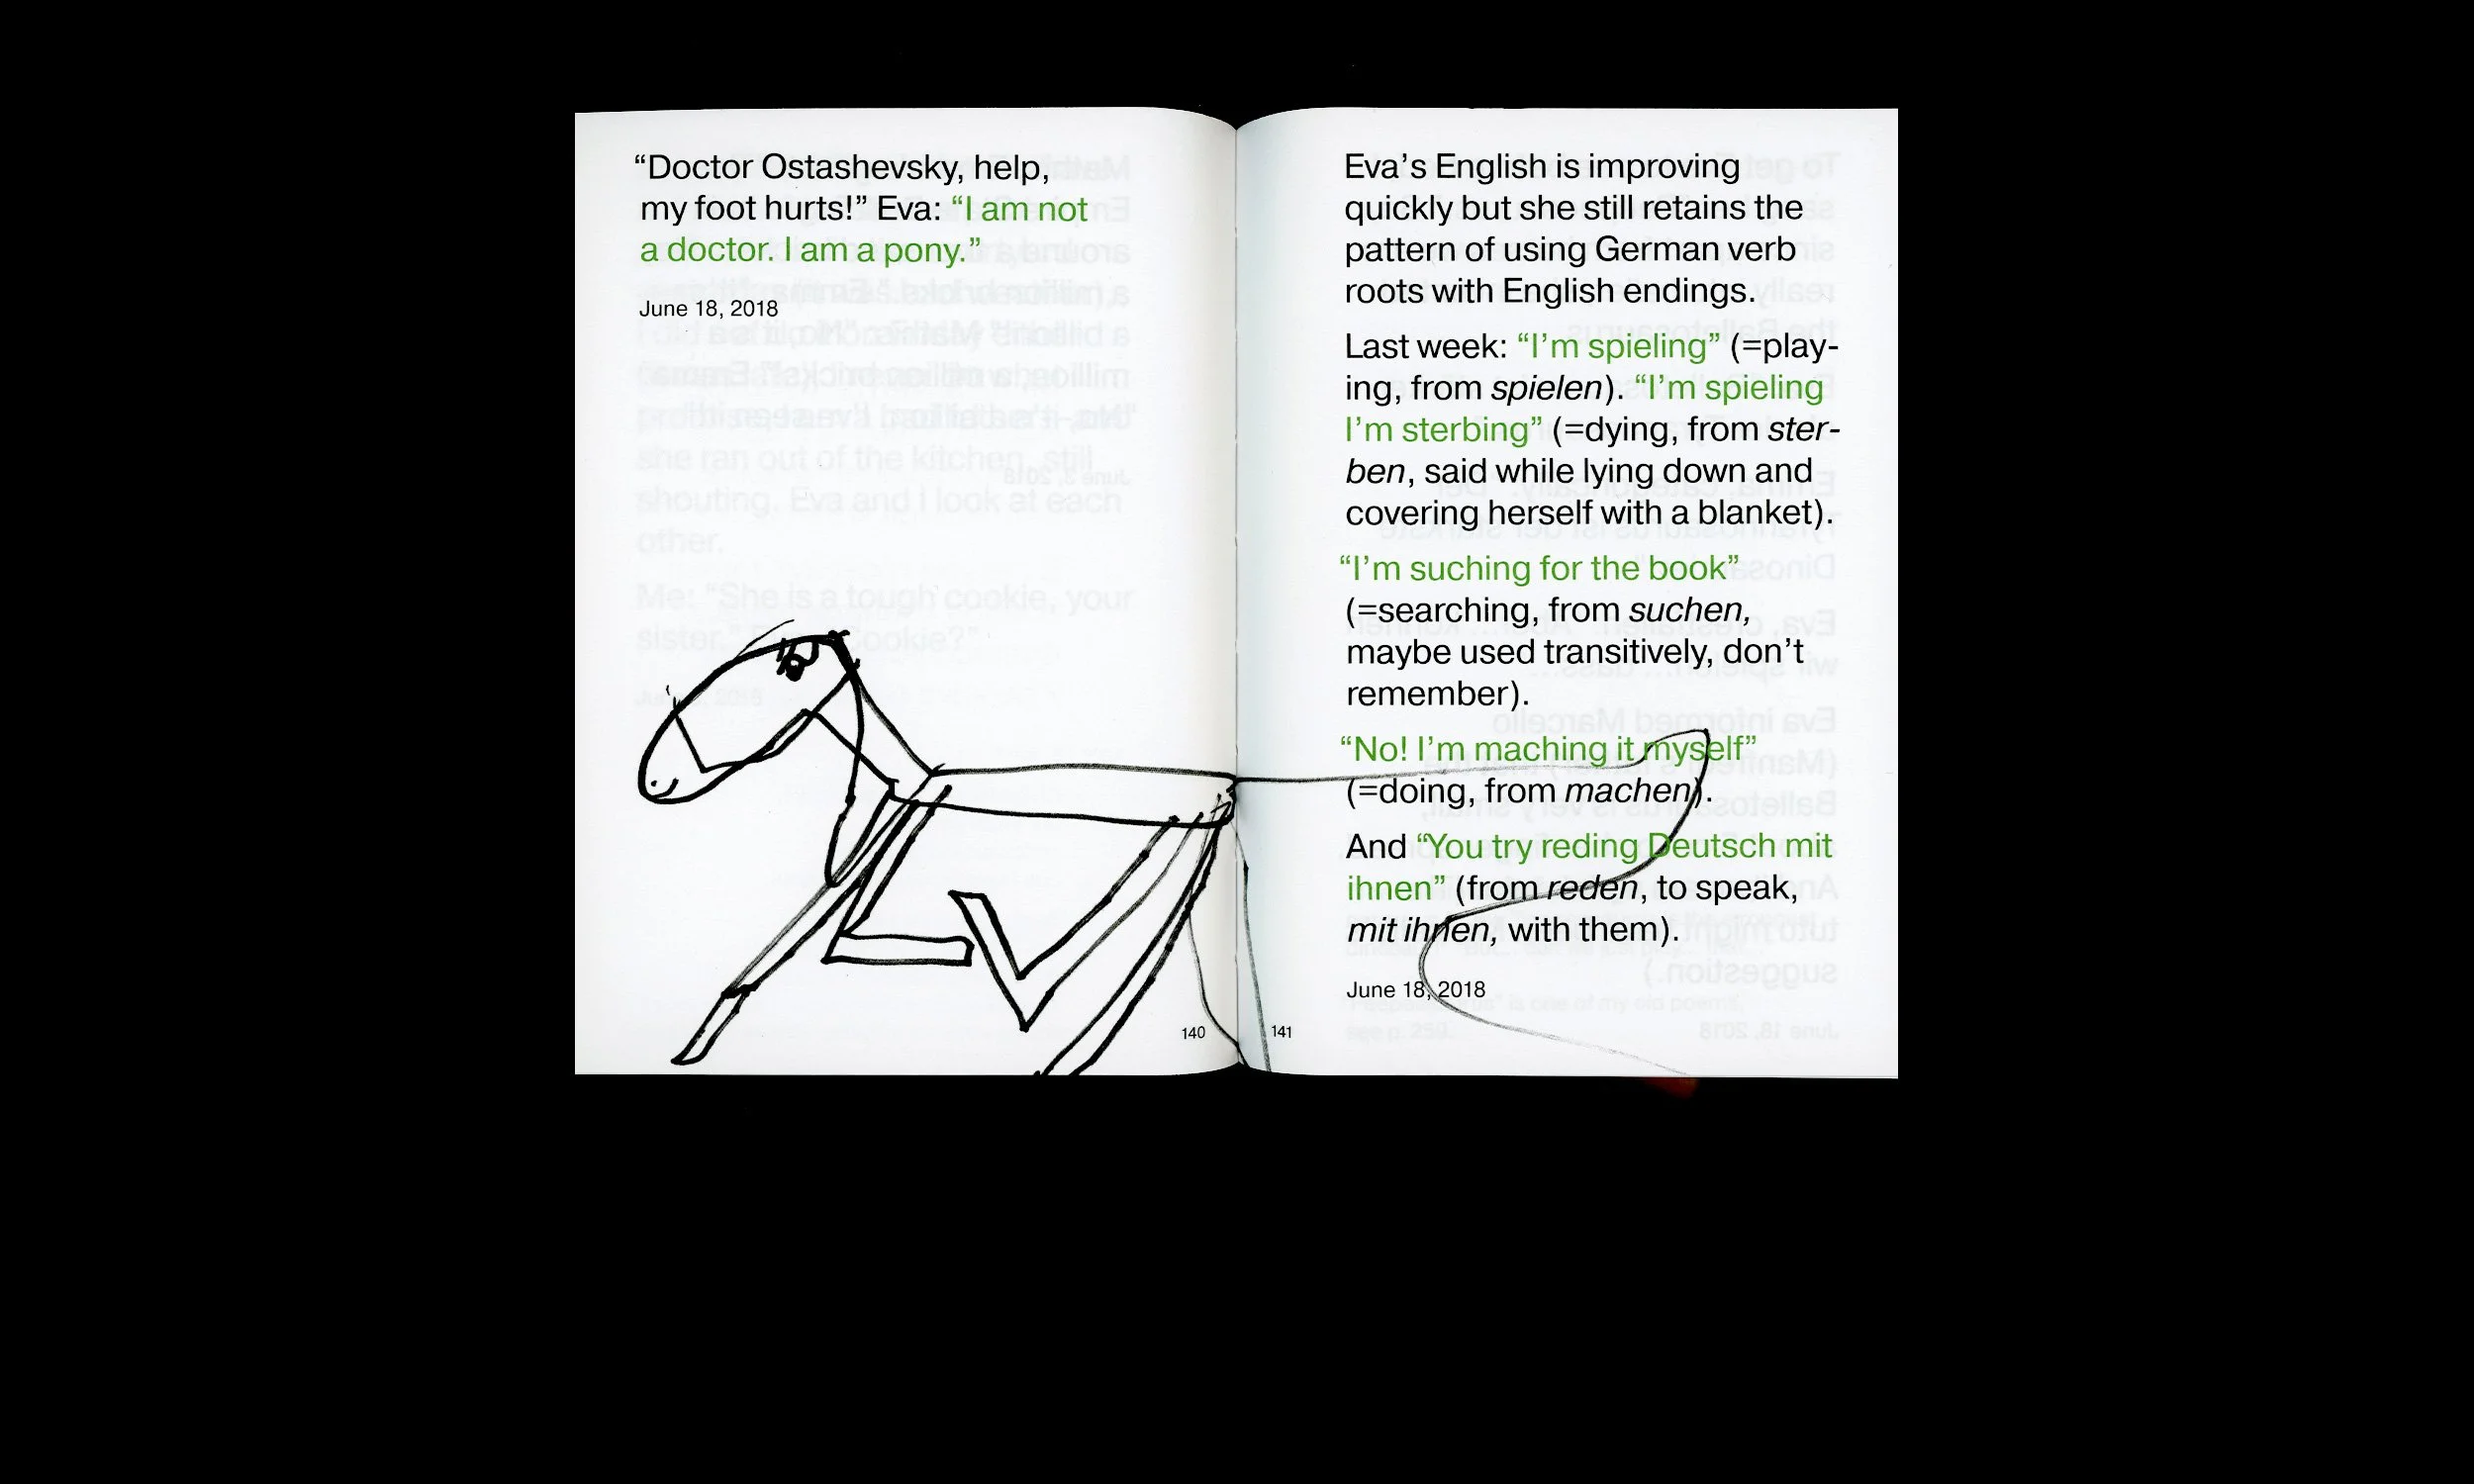 “Doctor Ostashevsky, help,
my foot hurts!” Eva: “I am not
a doctor. I am a pony.”
June 18, 2018
140
Eva’s English is improving
quickly but she still retains the
pattern of using German verb
roots with English endings.
Last week: “I’m spieling” (=play-
ing, from spielen). “I’m spieling
I’m sterbing” (=dying, from ster-
ben, said while lying down and
covering herself with a blanket).
“I’m suching for the book”
(=searching, from suchen,
maybe used transitively, don’t
remember).
“No! I’m maching it myself”
(=doing, from machen).
And “You try reding Deutsch mit
ihnen” (from reden, to speak,
mit ihnen, with them).
June 18, 2018
141